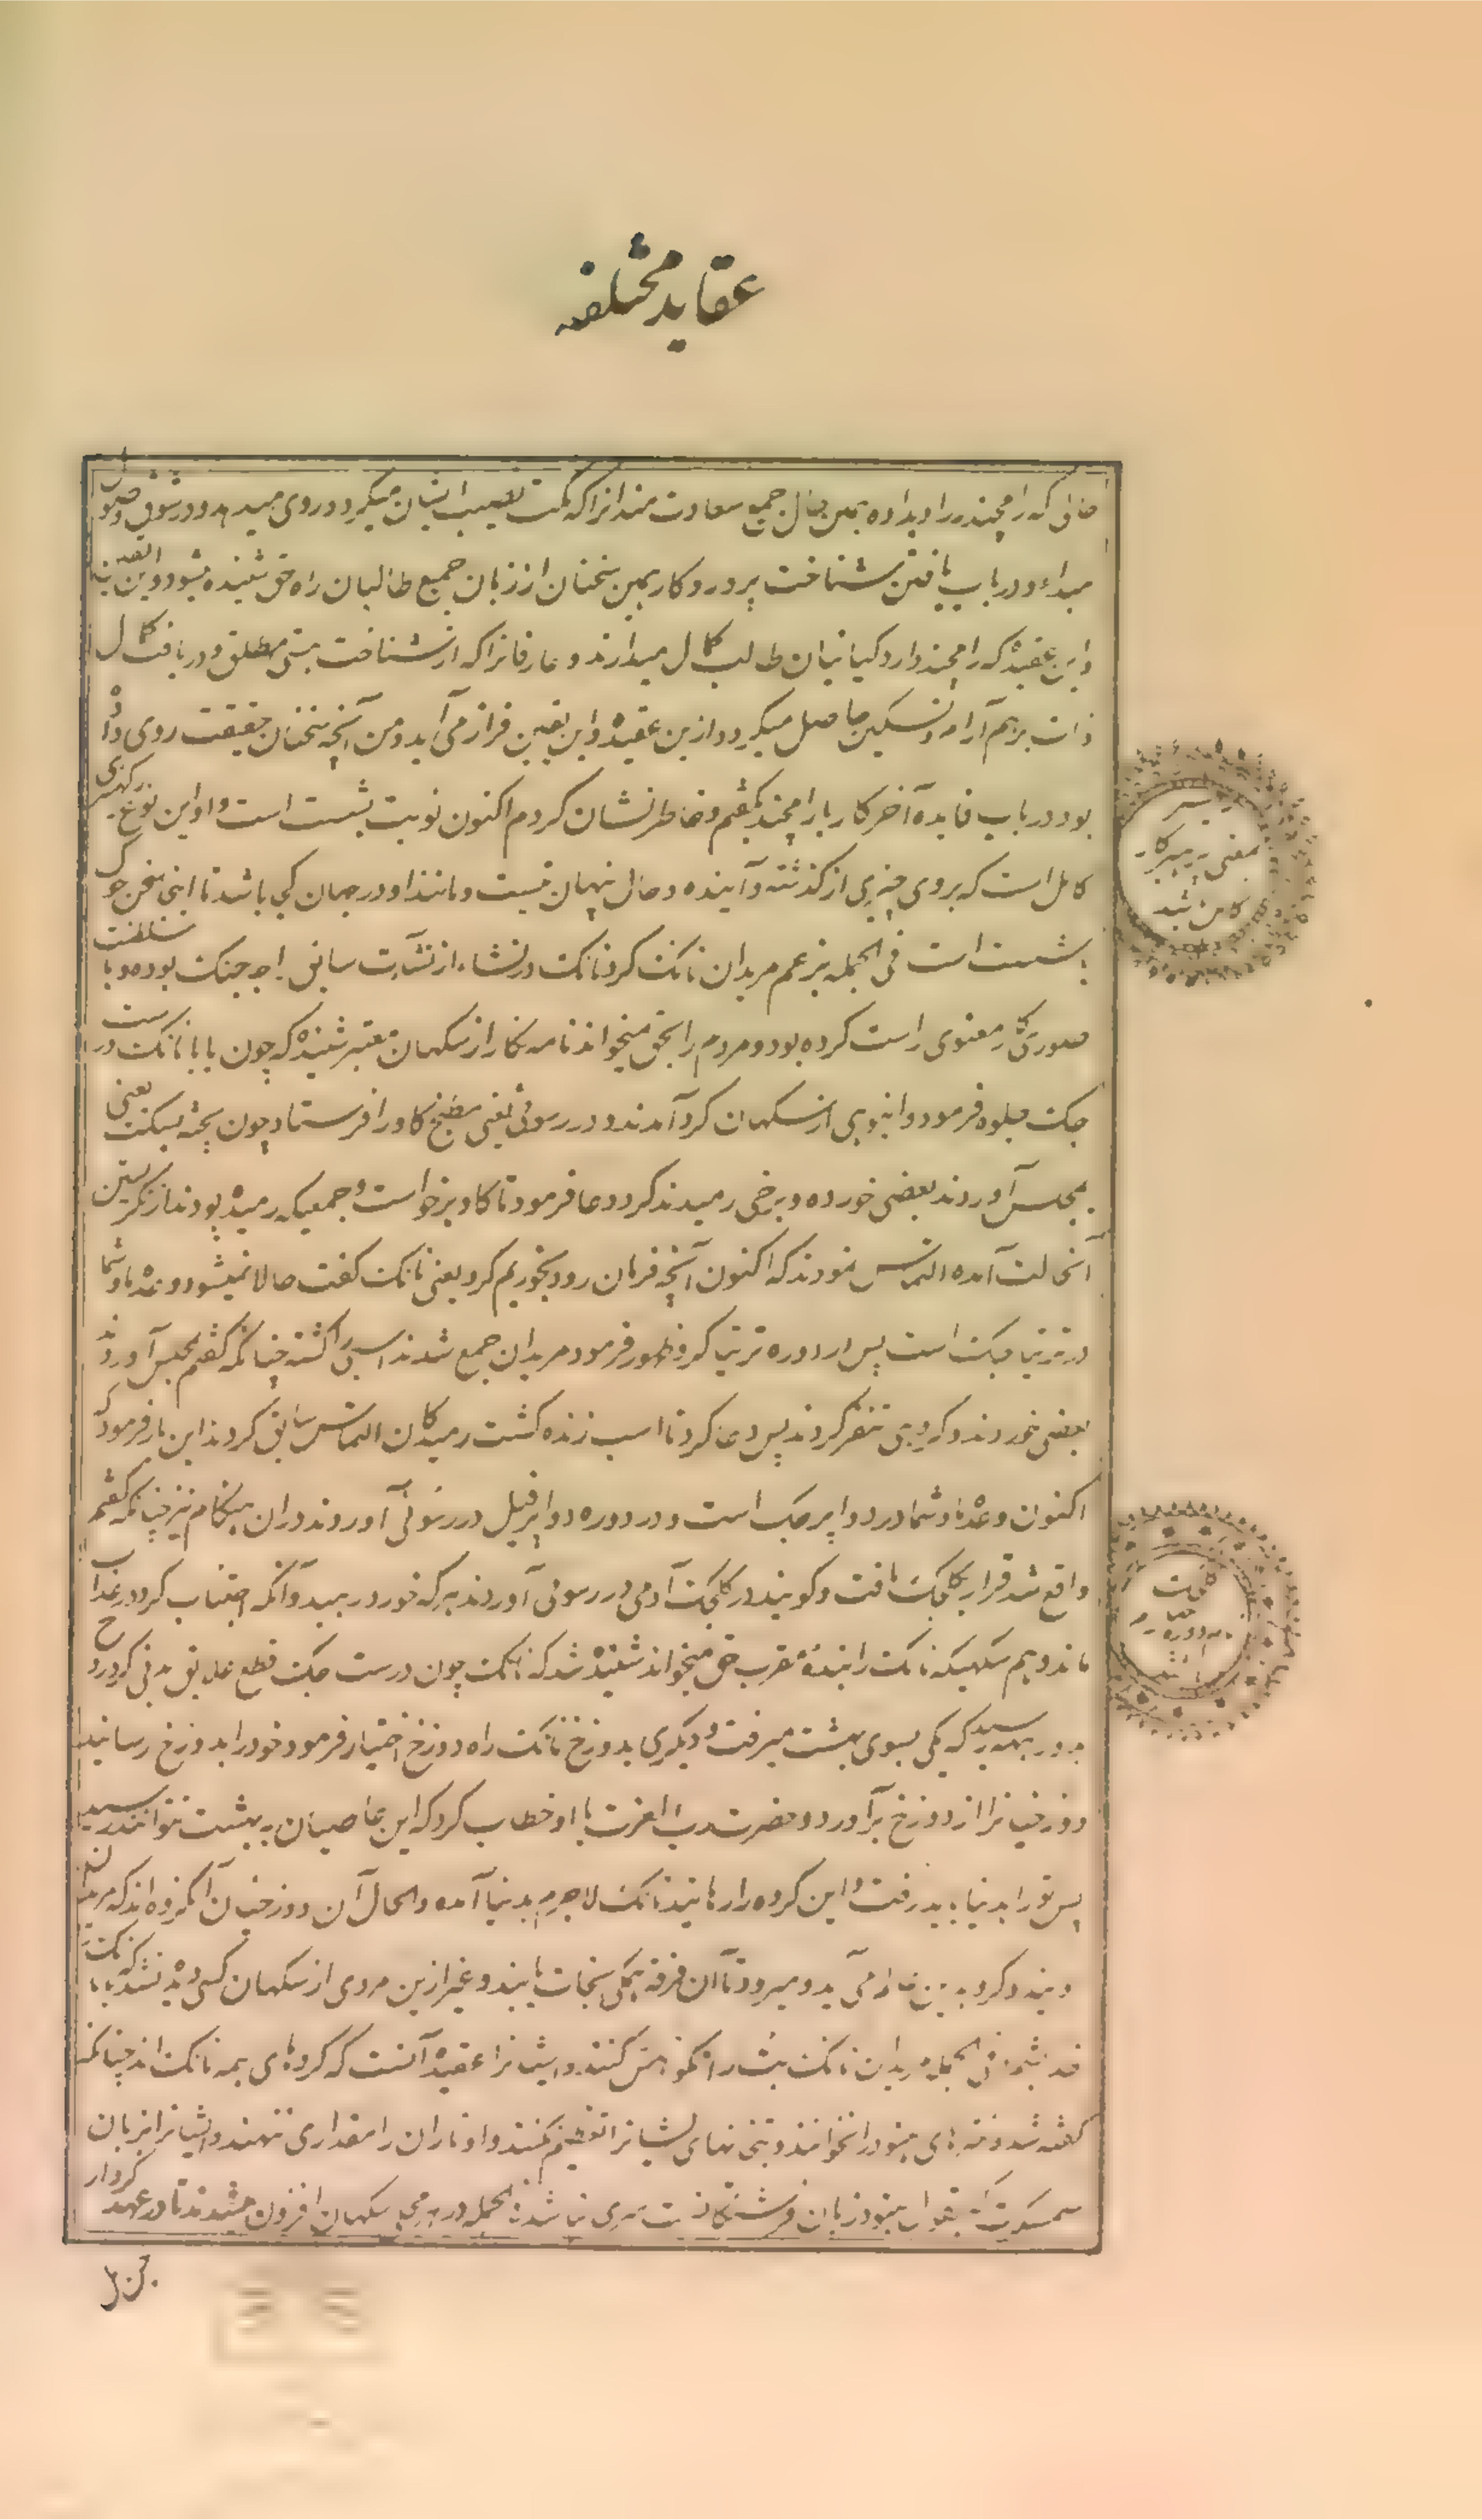 عقاید مختلفه
حالی که رامچندر را دیداده همین حال جمیع سعادت مندانرا که مکت نصیب ایشان میگردد روی میدهد و در شوق وصول
مبداء و در باب یافتن شناخت پروردکار همین سخنان از زبان جمیع طالبان راه حق شنیده میشود و این
و این عقیده که رامچند دارد کیانیان طالب کمال میدارند و عارفانرا که از شناخت هستی مطلق و دریافت کمال
ذات برهم آرام و تسکین حاصل میکردد ازین عقیده و این یقین فراز می آید و من آنچه سخنان حقیقت روی داد
بود در باب فایده آخر کار با رامچند کفتم و خاطر نشان کردم اکنون نوبت بشست است و او این نوع بزرکی
کامل است که بروی چیزی از کذشته و آینده و حال پنهان نیست و مانند او در جهان کی باشد تا اینجا سخن جوک
بشست است فی الجمله بزعم مریدان نانک کرو نانک در نشاء از نشآت سابق راجه جنک بوده و با سلطنت
صوری کار معنوی راست کرده بود و مردم را بحق میخواند نامه نکار از سکهان معتبر شنیده که چون بابا نانک در ست
جک جلوه فرمود و انبوهی از سکهان کرد آمدند در رسوئی یعنی مطبخ کاو را فرستاد چون پخته سنکت یعنی
بمجلس آوردند بعضی خورده و برخی رمیدند کرو دعا فرمود تا کاو برخواست و جمعیکه رمیده بودند از نکریستن
آنحالت آمده التماس نمودند که اکنون آنچه فرمان رود بخوریم کرو یعنی نانک کفت حالا نمیشود وعده ما و شما
در ترتیا جک است پس در دوره ترتیا کرو ظهور فرمود مریدان جمع شدند اسپی را کشته چنانکه کفتم بمجلس آوردند
بعضی خوردند و کروهی تنفر کردند پس دعا کرد تا اسب زنده کشت رمیدکان التماس سابق کردند این بار فرمود که
اکنون وعده ما و شما در دواپر جک است و در دوره دواپر فیل در رسوئی آوردند در آن هنکام نیز چنانکه کفتم
واقع شد قرار بکلجک یافت و کویند در کلجک آدمی در رسوئی آوردند هرکه خورد رهید و آنکه اجتناب کرد در عذاب
ماند و هم سکهیکه نانک را بنده مقرب حق میخواند شنیده شد که نانک چون در ست جک قطع علایق بدنی کرد روح
بدو راه رسید که یکی بسوی بهشت میرفت و دیکری بدوزخ نانک راه دوزخ اختیار فرمود و خود را بدوزخ رسانید
دوزخیانرا از دوزخ برآورد و حضرت رب العزت با او خطاب کرد که این عاصیان به بهشت نتوانند رسید
پس تو را بدنیا باید رفت و این کروه را رهانید نانک لاجرم بدنیا آمده و الحال آن دوزخیان آن کروه اند که مریدان
ویند و کرو بدین عالم می آید و میرود تا آن فرقه بکلی نجات یابند و غیر ازین مردی از سکهان کسی دیده نشد که بابا نانک
خدا شمرد فی الجمله مریدان نانک بت را نکوهش کنند و ایشانرا عقیده آنست که کروهای همه نانک اند چنانکه
کفته شد و منترهای هنود را نخوانند و بتخانهای ایشانرا تعظیم نکنند و اوتاران را مقداری ننهند و ایشانرا بزبان
سمسکرت که بقول هنود زبان فرشتکانست سری نباشد فی الجمله در هر محل سکهان افزون میشدند تا در عهد کرو ار
بمعنی پرهیزکار
کامل شد
کلجک
دوره